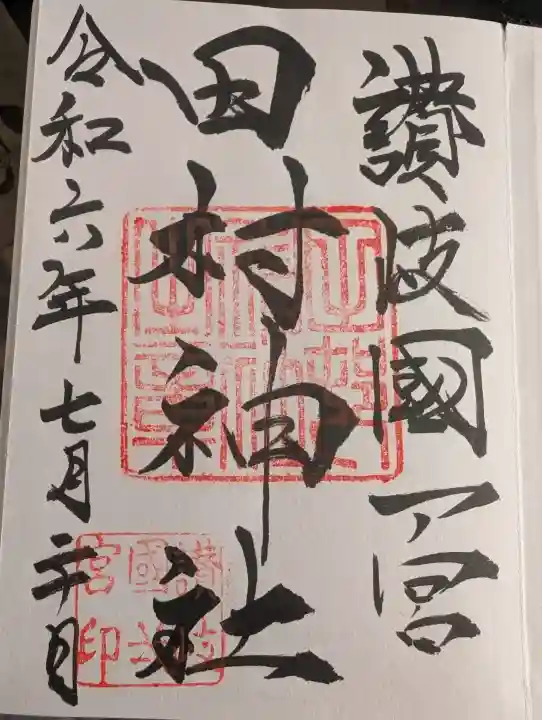 讃岐國一宮
田村神社
令和六年七月二十日
讃岐
國一
宮印